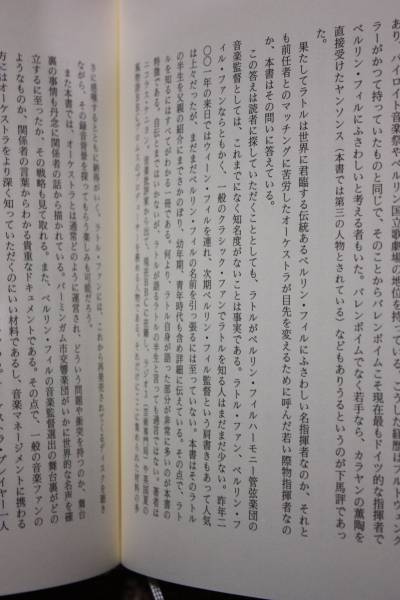 あり、バイロイト音楽祭やベルリン国立歌劇場の地位も持っている。こうした経歴は
ラーがかつて持っていたものと同じで、そのことからバレンボイムこそ現在最もドイツ的な指揮者で
ベルリン・フィルにふさわしいと考える者もいた。バレンボイムでなく若手なら、カラヤンの薫陶を
直接受けたヤンソンス（本書では第三の人物とされている）などもありうるというのが下馬評であっ
た。
果たしてラトルは世界に君臨する伝統あるベルリン・フィルにふさわしい名指揮者なのか、それと
も前任者とのマッチングに苦労したオーケストラが目先を変えるために呼んだ若い際物指揮者なの
か、本書はその問いに答えている。
この答えは読者に探していただくこととしても、ラトルがベルリン・フィルハーモニー管弦楽団の
音楽監督としては、これまでになく知名度がないことは事実である。ラトル・ファン、ベルリン・フ
ィル・ファンならともかく、一般のクラシック・ファンでラトルを知る人はまだまだ少ない。昨年二
〇〇一年の来日ではウィーン・フィルを連れ、次期ベルリン・フィル監督という肩書きもあって人気
は上々だったが、まだまだベルリン・フィルの名前を引っ張るには至っていない。本書はそのラトル
の半生を父親の紹介にまでさかのぼり、幼年期、青年時代も含め詳細に伝えている。その点で、ラト
ルを知るにはすべてがわかる一冊である。何より、ラトル自身が語った部分が非常に多いのが本書の
特徴である。自伝とまではいかないが、ラトルが語るラトルの半生と言っても過言ではない。著者は
ニコラス・ケニヨン。
さに感嘆するとともに納得がいく。ラトル・ファンには、これから再発売されてくるディスクを聴き
ながら、その録音背景を知ってもらう楽しみも可能だろう。
また本書では、オーケストラとは通常どのように運営され、どういう問題や衝突を持つのか、舞台
裏の事情も丹念に関係者の話から描かれている。バーミンガム市交響楽団がいかに世界的な名声を確
立するに至ったか、その戦略も見て取れる。また、ベルリン・フィルの音楽監督選出の舞台裏がどの
ようなものか、関係者の言葉からわかる貴重なドキュメントである。その点で、一般の音楽ファンの
方にはオーケストラをより深く知っていただくのにいい材料であるし、音楽マネージメントに携わる